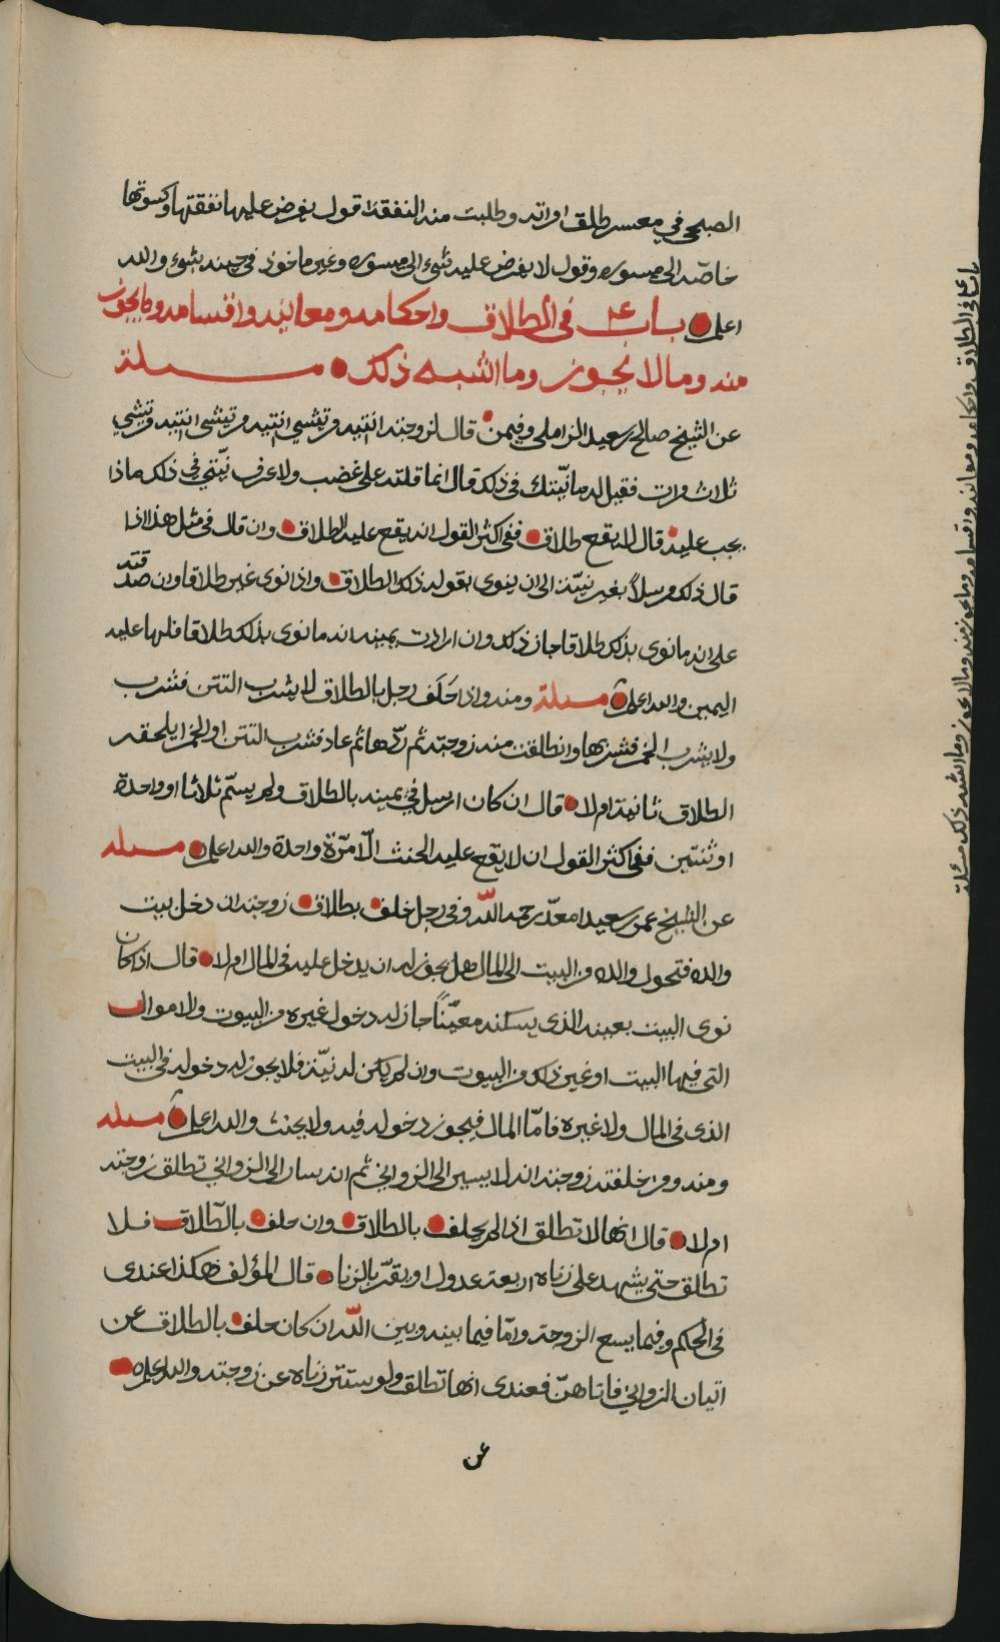 الصبحي في معسر طلق امراته وطلبت منه النفقة قول يفرض عليها نفقتها وكسوتها
خاصة الى ميسوره وقول لا يفرض عليه شيء الى ميسوره وغير ماخوذ في حينه بشيء والله
اعلم باب في الطلاق واحكامه ومعانيه واقسامه وما يجوز
منه وما لا يجوز وما اشبه ذلك مسئلة
عن الشيخ صالح بن سعيد الزاملي وفيمن قال لزوجته
ثلاث مرات فقيل له ما نيتك في ذلك قال انما قلته على غضب ولا عرف نيتي في ذلك ماذا
يجب عليه قال يقع طلاق ففي اكثر القول انه يقع عليه الطلاق وان قال في مثل هذا اذا
قال ذلك مرسلاً بغير نية الى ان ينوى بقوله ذلك الطلاق واذا نوى غير طلاق وان صدقته
على انه ما نوى بذلك طلاقا جاز ذلك وان ارادت يمينه انه ما نوى بذلك طلاقا فلها عليه
اليمين والله اعلم مسئلة ومنه واذا حَلَف رجل بالطلاق لا يشرب التتن فشرب
ولا يشرب الخمر فشربها وانطلقت منه زوجته ثم ردّها ثم عاد فشرب التتن او الخمر ايلحقه
الطلاق ثانية ام لا قال ان كان ارسل في يمينه بالطلاق ولم يسمّ ثلاثا او واحدة
او ثنتين ففي اكثر القول ان لا يقع عليه الحنث الّا مرّة واحدة والله اعلم مسئلة
عن الشيخ عمر بن سعيد امعدّ رحمه الله وفي رجل حلف بطلاق زوجته ان دخل بيت
والده فتحول والده من البيت الى المال هل يجوز له ان يدخل عليه في المال ام لا قال اذا كان
نوى البيت بعينه الذى يسكنه معيّناً جاز له دخول غيره من البيوت والاموال
التى فيها البيت او غير ذلك من البيوت وان لم يكن له نيّة فلا يجوز له دخوله في البيت
الذى في المال ولا غيره فامّا المال فيجوز دخوله فيه ولا يحنث والله اعلم مسئلة
ومنه ومن حلفته زوجته انه لا يسير الى الزواني ثم انه سار الى الزواني تطلق زوجته
ام لا قال انها لا تطلق اذا لم يحلف بالطلاق وان حلف بالطلاق فلا
تطلق حتى يشهد على زناه اربعة عدول او يقرّ بالزنا قال المؤلف هكذا عندى
في الحكم وفيما يسع الزوجة وامّا فيما بينه وبين الله ان كان حلف بالطلاق عن
اتيان الزواني فاتاهنّ فعندى انها تطلق ولو ستر زناه عن زوجته والله اعلم
عن
باب في الطلاق واحكامه ومعانيه واقسامه وما يجوز منه وما لا يجوز وما اشبه ذلك مسئلة